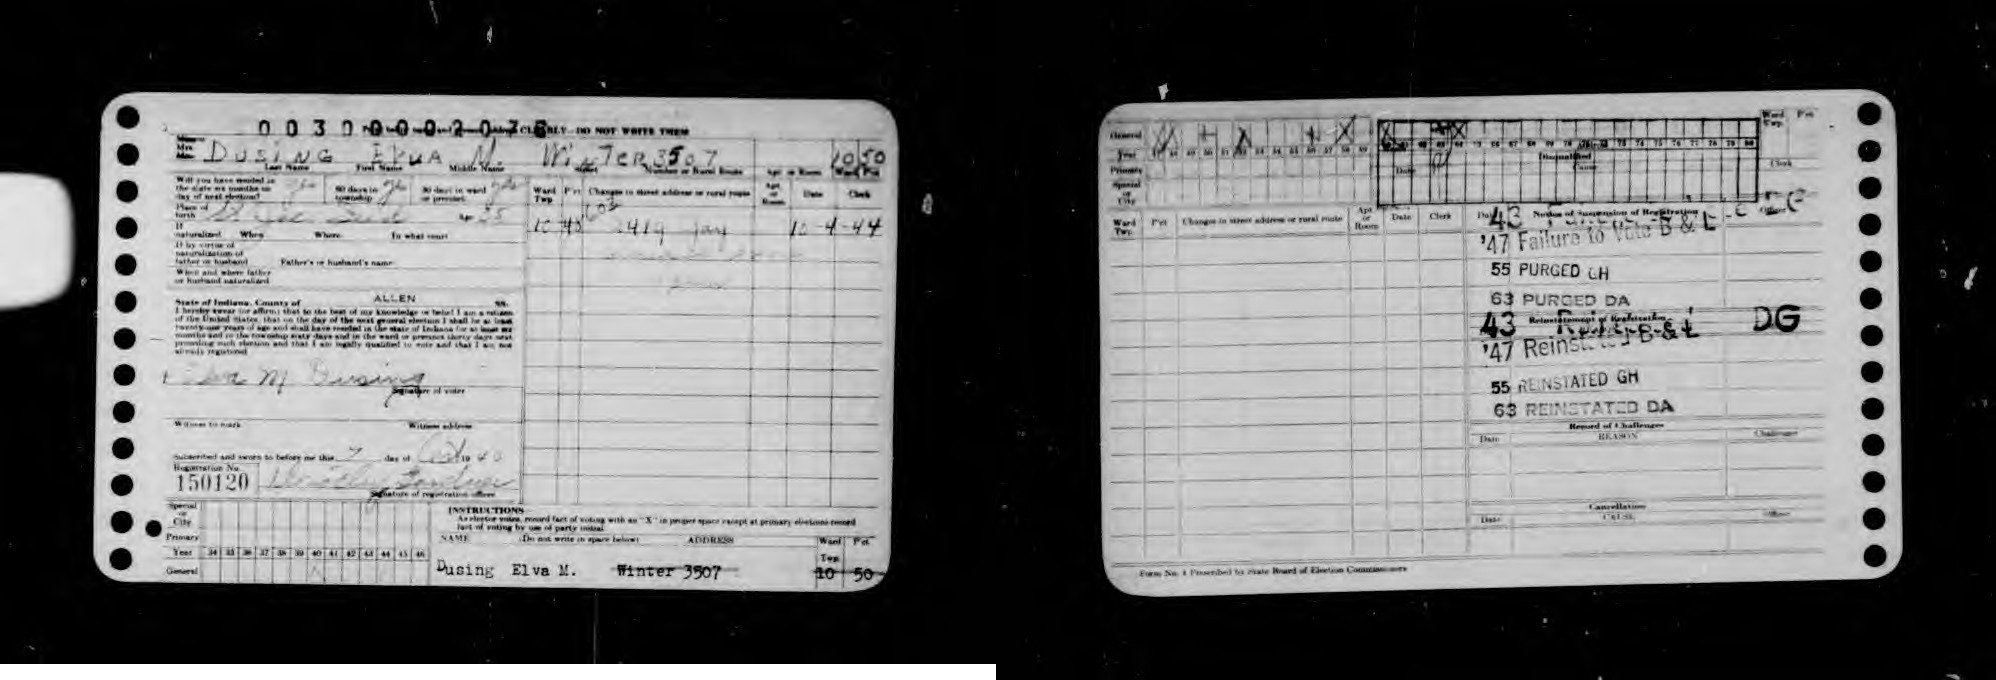 0030000203
CLEARLY—DO NOT WRITE THEM
Mrs. DUSING ELVA M. WINTER 3507 10 50
Last Name First Name Middle Name Street Number or Rural Route Apt. or Room Ward Pct
Will you have resided in the state six months on day of next election? yes 60 days in township yes 30 days in ward or precinct yes
Place of birth Age 35
If naturalized When Where In what court
If by virtue of naturalization of father or husband Father's or husband's name
When and where father or husband naturalized
State of Indiana, County of ALLEN ss.
I hereby swear (or affirm) that to the best of my knowledge or belief I am a citizen
of the United States, that on the day of the next general election I shall be at least
twenty-one years of age and shall have resided in the state of Indiana for at least six
months and in the township sixty days and in the ward or precinct thirty days next
preceding such election and that I am legally qualified to vote and that I am not
already registered.
M Dusing
Signature of voter
Witness to mark Witness address
Subscribed and sworn to before me this 7 day of Oct 19 40
Registration No.
150120
Signature of registration officer
Ward Twp. Pct Changes in street address or rural route Apt. or Room Date Clerk
10 2419 Jay 10-4-44
INSTRUCTIONS
As elector votes, record fact of voting with an "X" in proper space except at primary elections record
fact of voting by use of party initial.
Special or City
Primary
Year 34 35 36 37 38 39 40 41 42 43 44 45 46
General
NAME (Do not write in space below) ADDRESS Ward Twp. Pct
Dusing Elva M. Winter 3507 10 50
General
Year
Primary
Special or City
Disqualified
Date Cause
Ward Twp. Pct
Clerk
Ward Twp. Pct Changes in street address or rural route Apt or Room Date Clerk
Notice of Suspension of Registration
43
'47 Failure to Vote B & L
55 PURGED GH
63 PURGED DA
Reinstatement of Registration
43 DG
'47 Reinstated B & L
55 REINSTATED GH
63 REINSTATED DA
Record of Challenges
Date REASON Challenger
Cancellation
Date CAUSE Officer
Form No. 4 Prescribed by State Board of Election Commissioners